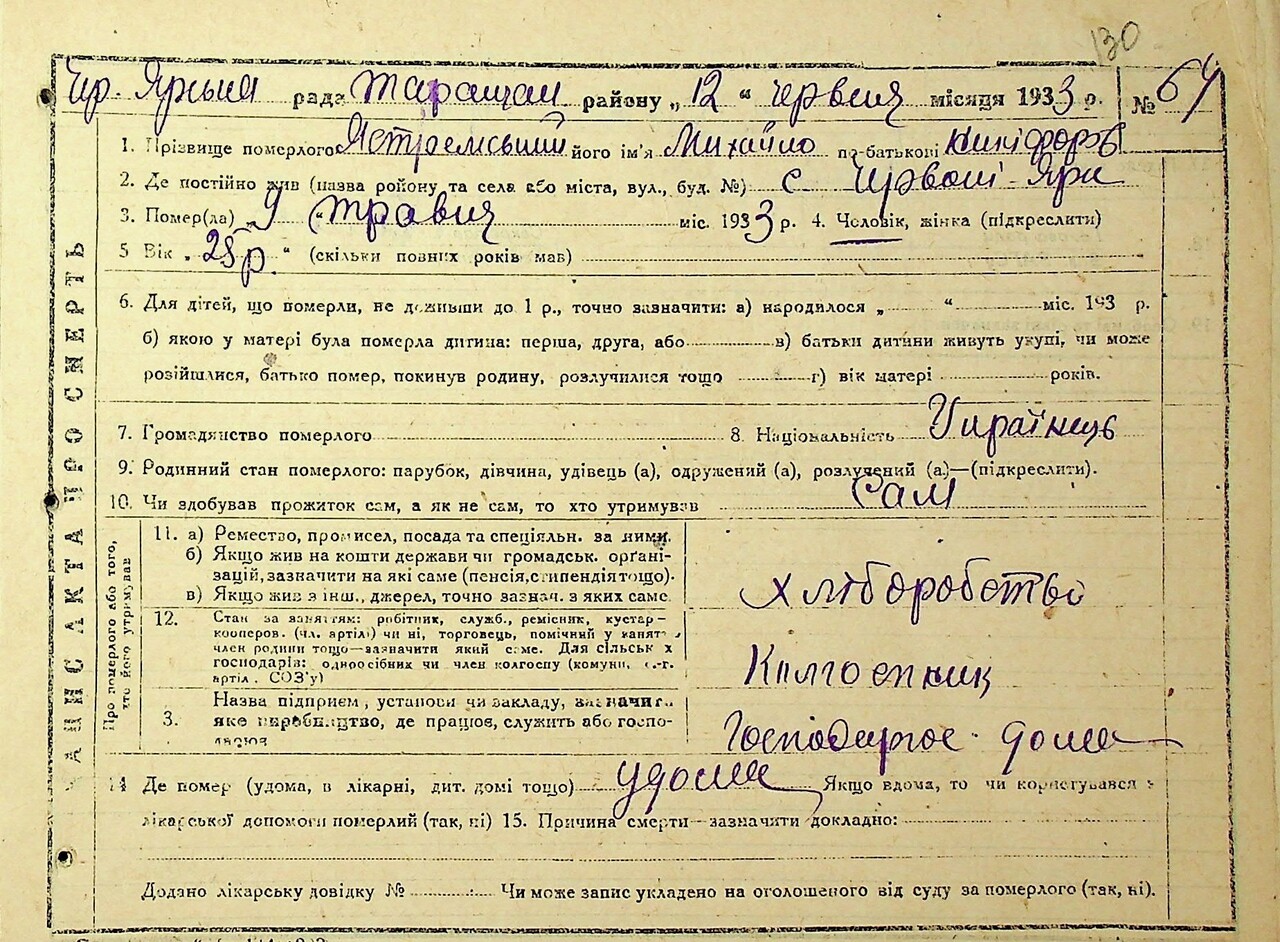 130
Чр. Ярська рада Таращан району „ 12 “ червня місяця 1933 р. № 64
1. Прізвище померлого Ястремський його ім'я Михайло по-батькові Никифоров
2. Де постійно жив (назва ройону та села або міста, вул., буд. №) с Червоні-Яри
3. Помер(ла) „ 9 “ травня міс. 1933 р. 4. Чоловік, жінка (підкреслити)
5 Вік „ 28 р. “ (скільки повних років мав)
6. Для дітей, що померли, не доживши до 1 р., точно зазначити: а) народилося „ “ міс. 193 р.
б) якою у матері була померла дитина: перша, друга, або в) батьки дитини живуть укупі, чи може
розійшлися, батько помер, покинув родину, розлучилися тощо г) вік матері років.
7. Громадянство померлого 8. Національність Українець
9. Родинний стан померлого: парубок, дівчина, удівець (а), одружений (а), розлучений (а)—(підкреслити).
10. Чи здобував прожиток сам, а як не сам, то хто утримував Сам
Про померлого або того, хто його утримував
11. а) Ремество, промисел, посада та спеціяльн. за ними.
б) Якщо жив на кошти держави чи громадськ. орґані-
зацій, зазначити на які саме (пенсія, стипендія тощо).
в) Якщо жив з інш., джерел, точно зазнач. з яких саме
хліборобство
12. Стан за заняттям: робітник, служб., ремісник, кустар—
кооперов. (чл. артілі) чи ні, торговець, помічний у занят
член родини тощо—зазначити який саме. Для сільськ х
господарів: одноосібник чи член колгоспу (комуни, с.-г.
артіл . СОЗ'у)
Колгоспник
3. Назва підприєм , установи чи закладу, зазначити
яке виробництво, де працює, служить або госпо-
дарює
Господарює дома
14 Де помер (удома, в лікарні, дит. домі тощо) удома Якщо вдома, то чи користувався
лікарської допомоги померлий (так, ні) 15. Причина смерти—зазначити докладно:
Додано лікарську довідку № Чи може запис укладено на оголошеного від суду за померлого (так, ні).
ЗАПИС АКТА ПРО СМЕРТЬ